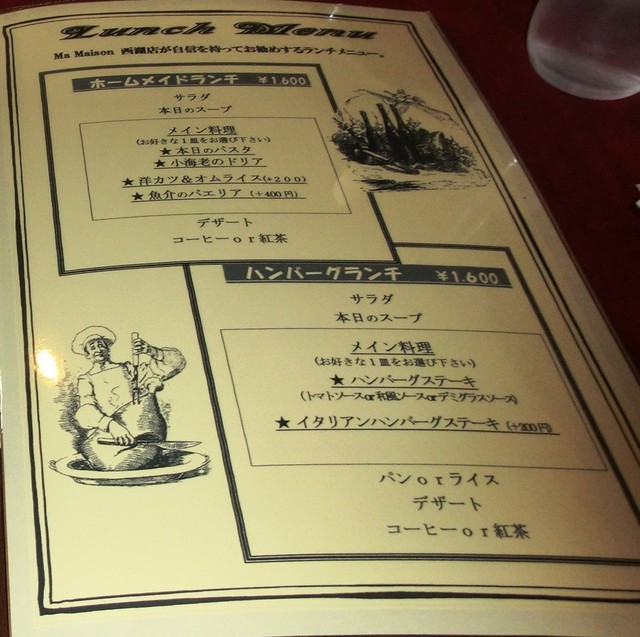 Lunch Menu
Ma Maison 西湖店が自信を持ってお勧めするランチメニュー。
ホームメイドランチ ￥1.600
サラダ
本日のスープ
メイン料理
(お好きな１皿をお選び下さい)
★ 本日のパスタ
★ 小海老のドリア
★ 洋カツ＆オムライス(+２００)
★ 魚介のパエリア (+400円)
デザート
コーヒーｏｒ紅茶
ハンバーグランチ ￥1.600
サラダ
本日のスープ
メイン料理
(お好きな１皿をお選び下さい)
★ ハンバーグステーキ
(トマトソースor和風ソースorデミグラスソース)
★ イタリアンハンバーグステーキ (+200円)
パンｏｒライス
デザート
コーヒーｏｒ紅茶